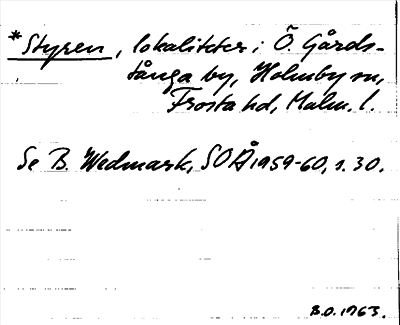 *Styren, lokaliteter i Ö. Gårds-
tånga by, Holmby sn,
Frosta hd, Malm. l.
Se B. Wedmark, SOÅ 1959-60, s. 30.
B.O. 1963.